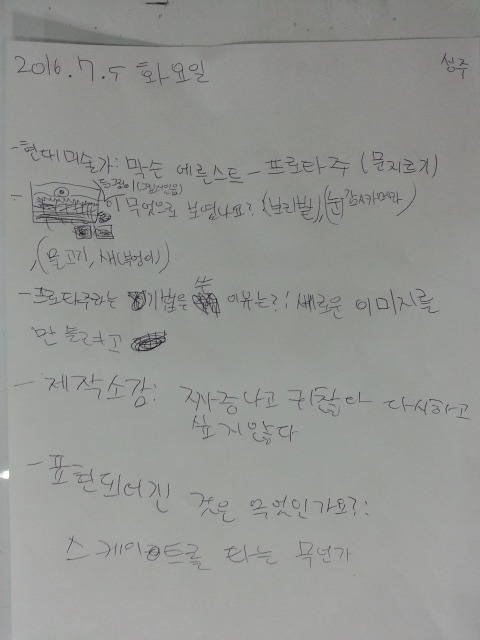 2016.7.5 화요일
성주
-현대미술가: 막스 에른스트-프로타주(문지르기)
- 이 무엇으로 보였나요? (보리밭), (눈 감시카메라)
,(물고기, 새(부엉이)
-프로타주라는 기법을 쓴 이유는?: 새로운 이미지를
만들려고
-제작소감: 짜증나고 귀찮다 다시하고
싶지않다
-표현되어진 것은 무엇인가요?:
스케이트를 타는 무언가